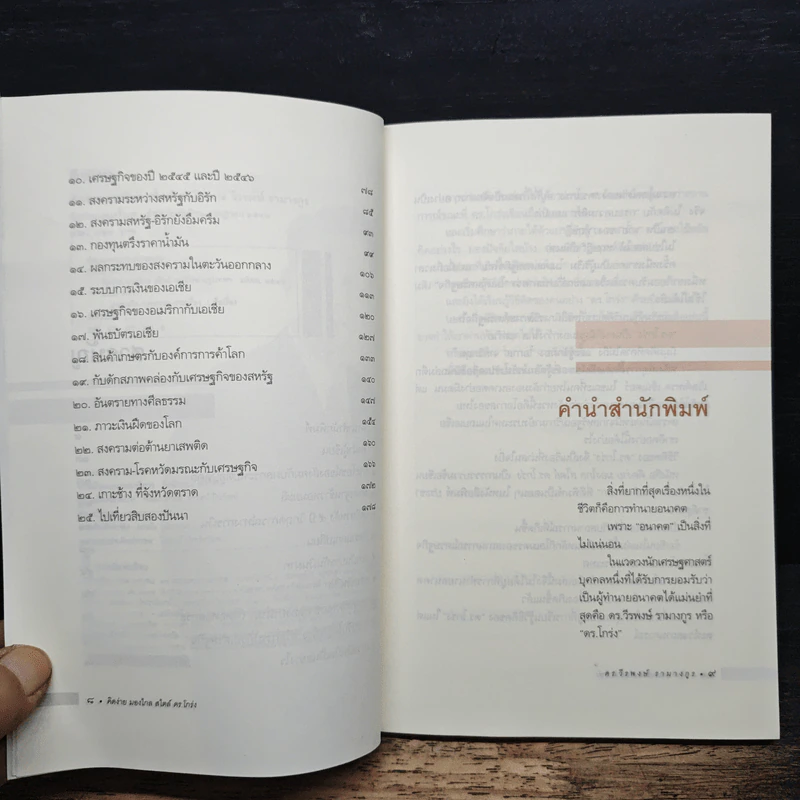 ๑๐. เศรษฐกิจของปี ๒๕๔๕ และปี ๒๕๔๖ ๗๘
๑๑. สงครามระหว่างสหรัฐกับอิรัก ๘๕
๑๒. สงครามสหรัฐ-อิรักยังอึมครึม ๙๓
๑๓. กองทุนตรึงราคาน้ำมัน ๙๙
๑๔. ผลกระทบของสงครามในตะวันออกกลาง ๑๐๖
๑๕. ระบบการเงินของเอเชีย ๑๑๓
๑๖. เศรษฐกิจของอเมริกากับเอเชีย ๑๒๐
๑๗. พันธบัตรเอเชีย ๑๒๗
๑๘. สินค้าเกษตรกับองค์การการค้าโลก ๑๓๓
๑๙. กับดักสภาพคล่องกับเศรษฐกิจของสหรัฐ ๑๔๐
๒๐. อันตรายทางศีลธรรม ๑๔๗
๒๑. ภาวะเงินฝืดของโลก ๑๕๔
๒๒. สงครามต่อต้านยาเสพติด ๑๖๐
๒๓. สงคราม-โรคหวัดมรณะกับเศรษฐกิจ ๑๖๖
๒๔. เกาะช้าง ที่จังหวัดตราด ๑๗๒
๒๕. ไปเที่ยวสิบสองปันนา ๑๗๘
๘ • คิดง่าย มองไกล สไตล์ ดร.โกร่ง
คำนำสำนักพิมพ์
สิ่งที่ยากที่สุดเรื่องหนึ่งใน
ชีวิตก็คือการทำนายอนาคต
เพราะ "อนาคต" เป็นสิ่งที่
ไม่แน่นอน
ในแวดวงนักเศรษฐศาสตร์
บุคคลหนึ่งที่ได้รับการยอมรับว่า
เป็นผู้ทำนายอนาคตได้แม่นยำที่
สุดคือ ดร.วีรพงษ์ รามางกูร หรือ
"ดร.โกร่ง"
ดร.วีรพงษ์ รามางกูร • ๙